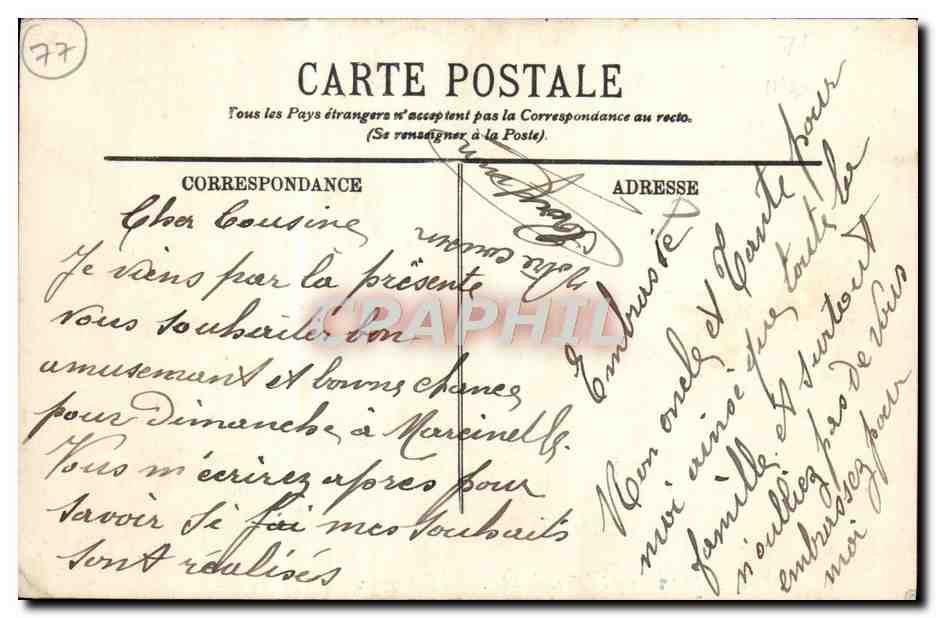 77
CARTE POSTALE
Tous les Pays étrangers n'acceptent pas la Correspondance au recto.
(Se renseigner à la Poste).
CORRESPONDANCE
ADRESSE
Cher Cousine
Je viens par la présente
vous souhaiter bon
amusemant et bonne chance
pour Dimanche à Marcinelle.
Vous m'écrirez apres pour
savoir si j'ai mes souhaits
sont réalisés
Embrasse
Mon oncle et Tante pour
moi ainsi que toute la
famille et surtout
n'oubliez pas de vous
embrassez pour
moi
Votre cousin
CPAPHIL